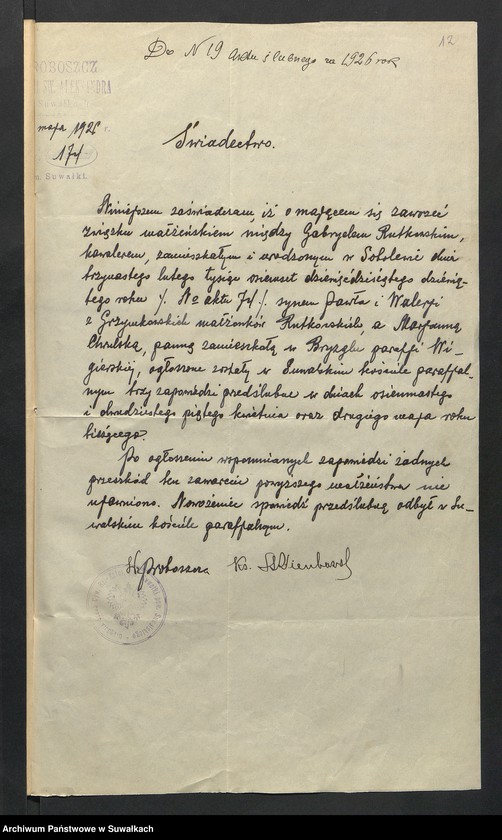 Do N 19 Aktu ślubnego za 1926 rok
12
PROBOSZCZ
ŚW. ALEKSANDRA
maja 1926 r.
174
Suwałki.
Świadectwo.
Niniejszem zaświadczam, iż o mającem się zawrzeć
związku małżeńskiem między Gabryelem Rutkowskim,
kawalerem, zamieszkałym i urodzonym w Sobolewie dnia
trzynastego lutego tysiąc osiemset dziewięćdziesiątego dziewią-
tego roku /. No aktu 74 /. synem Pawła i Waleryi
z Grzymkowskich małżonków Rutkowskich, a Maryanną
Chmilską, panną zamieszkałą w Bryzglu parafji Wi-
gierskiej, ogłoszone zostały w Suwalskim kościele parafjal-
nym trzy zapowiedzi przedślubne w dniach osiemnastego
i dwudziestego piątego kwietnia oraz drugiego maja roku
bieżącego.
Po ogłoszeniu wspomnianych zapowiedzi żadnych
przeszkód ku zawarciu powyższego małżeństwa nie
ujawniono. Nowożeniec spowiedź przedślubną odbył w Su-
walskim kościele parafjalnym.
Proboszcza Ks.
Archiwum Państwowe w Suwałkach